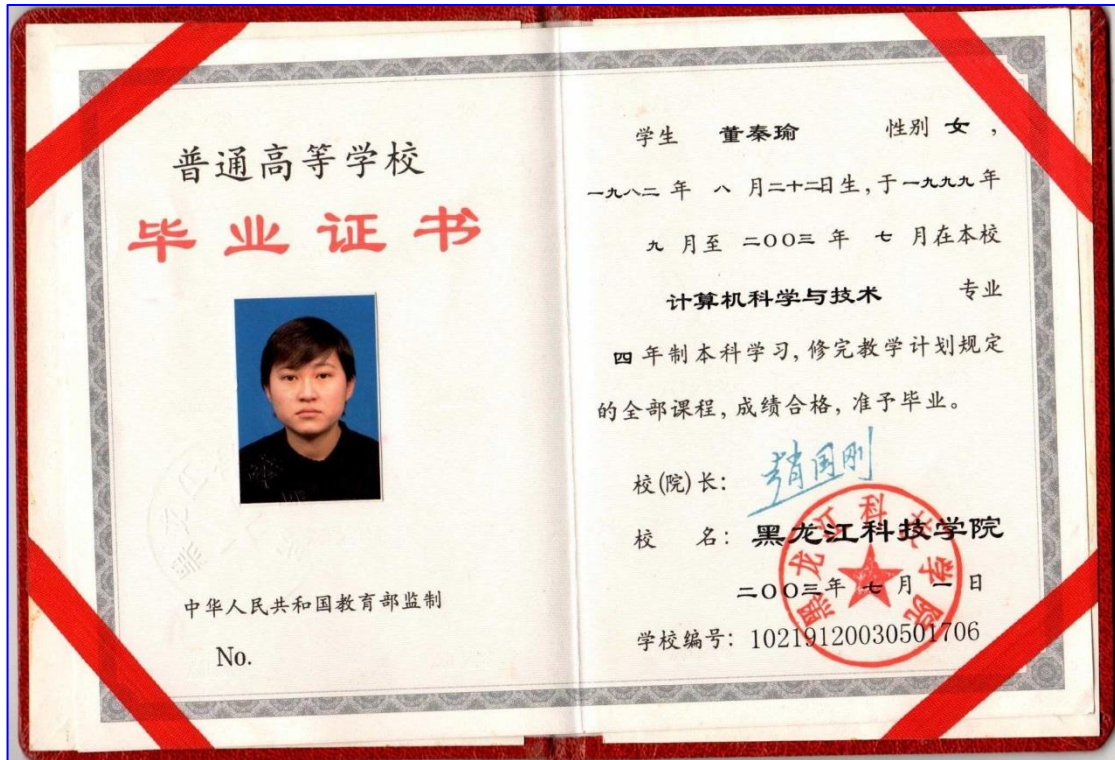 普通高等学校
毕业证书
中华人民共和国教育部监制
No.
学生 董秦瑜 性别 女,
一九八二 年 八 月二十二日生,于一九九九年
九 月至 二〇〇三 年 七 月在本校
计算机科学与技术 专业
四 年制本科学习,修完教学计划规定
的全部课程,成绩合格,准予毕业。
校(院)长: 赵国刚
校 名: 黑龙江科技学院
二〇〇三年 七 月 一 日
学校编号: 10219120030501706
黑龙江科技学院